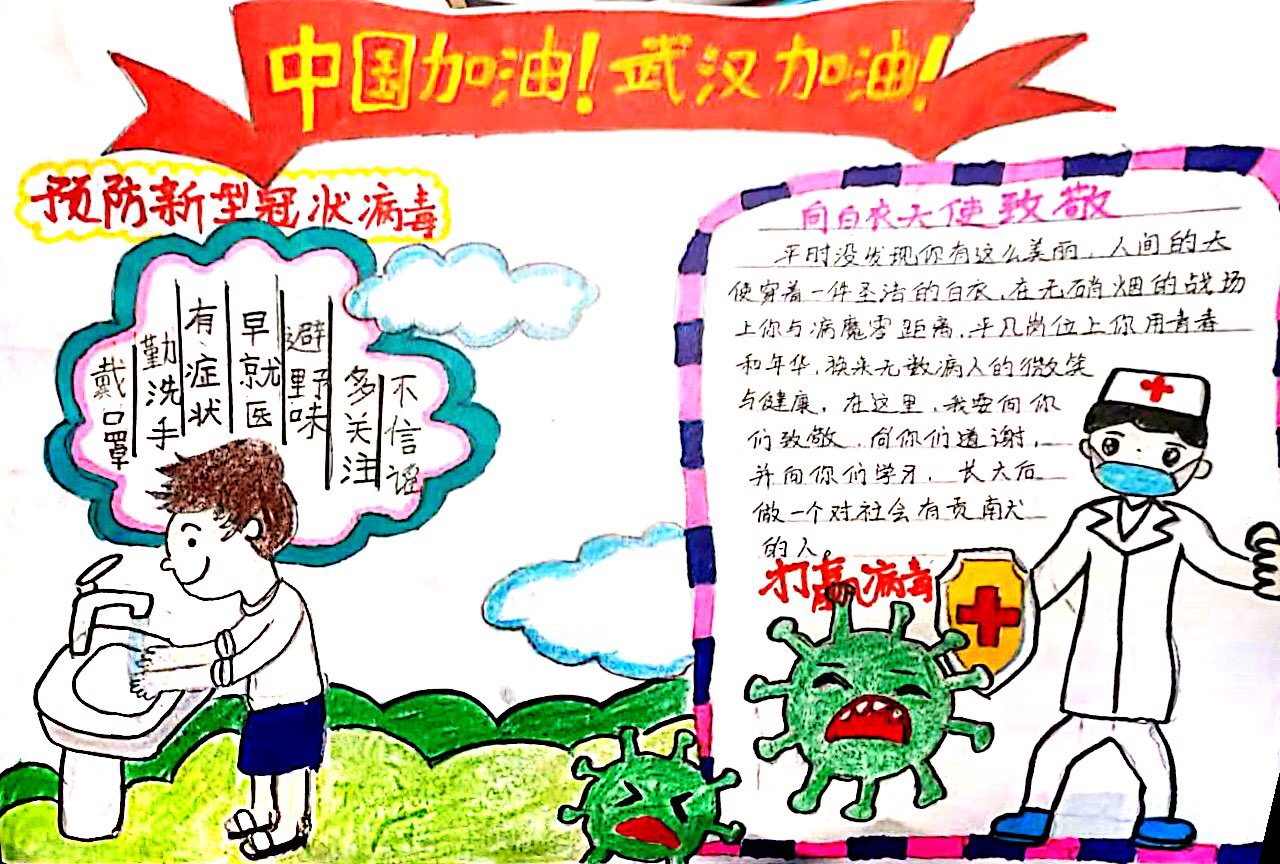 中国加油!武汉加油!
预防新型冠状病毒
戴口罩
勤洗手
有症状
早就医
避野味
多关注
不信谣
向白衣天使致敬
平时没发现你有这么美丽,人间的天
使穿着一件圣洁的白衣,在无硝烟的战场
上你与病魔零距离,平凡岗位上你用青春
和年华,换来无数病人的微笑
与健康,在这里,我要向你
们致敬,向你们道谢,
并向你们学习,长大后
做一个对社会有贡献
的人。
打赢病毒